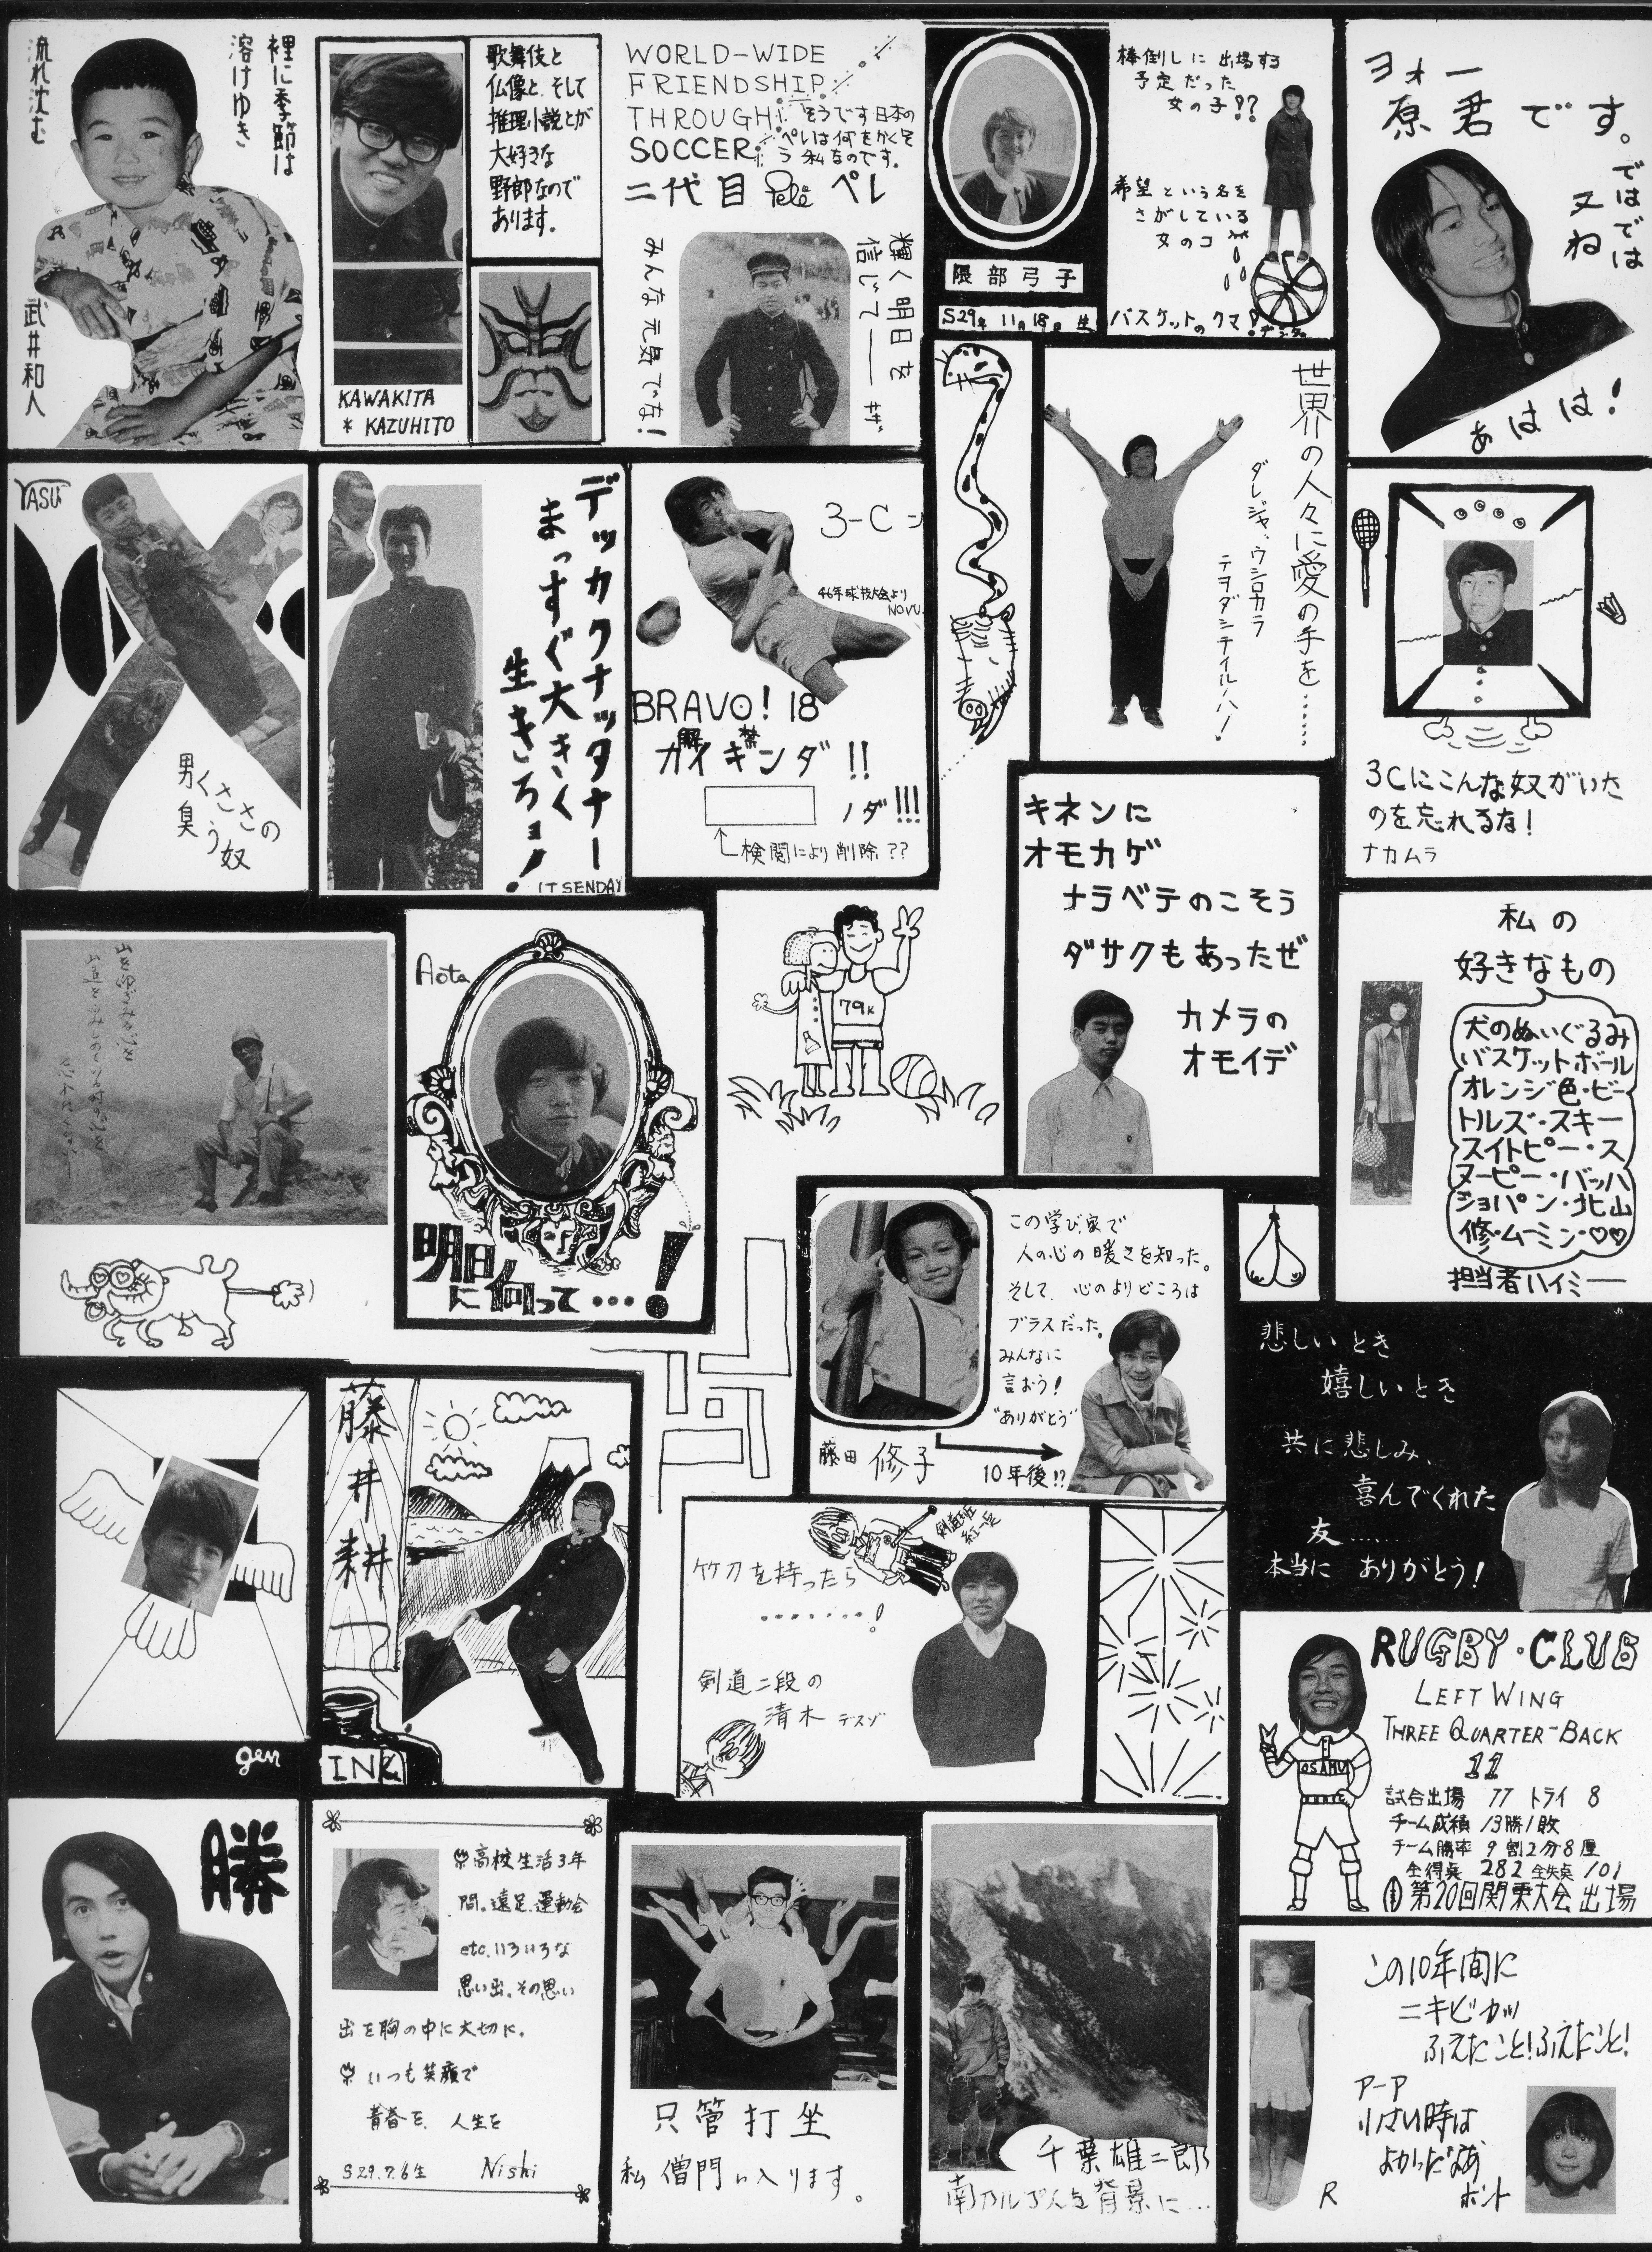 裡に季節は
溶けゆき
流れ沈む
武井和人
KAWAKITA
* KAZUHITO
歌舞伎と
仏像と、そして
推理小説とが
大好きな
野郎なので
あります。
WORLD-WIDE
FRIENDSHIP
THROUGH
SOCCER
そうです日本の
ペレは何をかくそ
う私なのです。
二代目 Pelé ペレ
輝く明日を
信じて——
みんな元気でな!
隈部弓子
S29年11月18日生
棒倒しに出場する
予定だった
女の子!?
希望という名を
さがしている
女のコ
バスケットのクマ
ヨォー
原君です。
ではでは
又ね
あはは!
YASU
男くささの
臭う奴
デッカクナッタナー
まっすぐ大きく
生きろョ!
(T SENDA)
3-C
46年球技大会より
NOVU.
BRAVO! 18
解禁
カイキンダ!!
ノダ!!!
検閲により削除??
世界の人々に愛の手を……
ダレジャ、ウシロカラ
テヲダシテイルノハ!
3Cにこんな奴がいた
のを忘れるな!
ナカムラ
キネンに
オモカゲ
ナラベテのこそう
ダサクもあったぜ
カメラの
オモイデ
私の
好きなもの
犬のぬいぐるみ
バスケットボール
オレンジ色・ビー
トルズ・スキー
スイトピー・ス
ヌーピー・バッハ
ショパン・北山
修・ムーミン・♡♡
担当者ハイミー
Aota
明日
に向って…!
79K
この学び家で
人の心の暖さを知った。
そして、心のよりどころは
ブラスだった。
みんなに
言おう!
"ありがとう"
藤田 修子
10年後!?
悲しいとき
嬉しいとき
共に悲しみ、
喜んでくれた
友……
本当に ありがとう!
gen
藤井耕一
INK
剣道班
紅一点
竹刀を持ったら
………!
剣道二段の
清水 デスゾ
RUGBY・CLUB
LEFT WING
THREE QUARTER-BACK
11
OSAMU
試合出場 77 トライ 8
チーム成績 13勝1敗
チーム勝率 9割2分8厘
全得点 282 全失点 101
第20回関東大会出場
勝
高校生活3年
間。遠足、運動会
etc.いろいろな
思い出。その思い
出を胸の中に大切に。
いつも笑顔で
青春を、人生を
S29.7.6生 Nishi
只管打坐
私僧門に入ります。
千葉雄二郎
背景に…
この10年間に
ニキビガッ
ふえたこと!ふえたこと!
アーア
小さい時は
よかったなあ
ホント
R